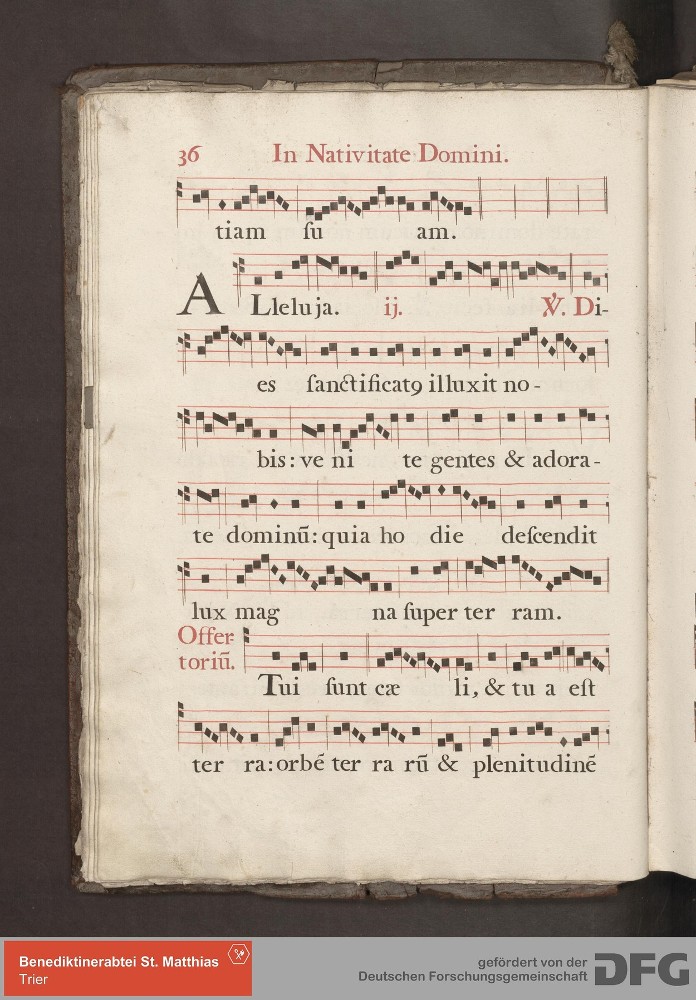 36 In Nativitate Domini.
tiam ſu am.
ALleluja. ij. ℣. Di-
es ſanctificatꝯ illuxit no-
bis: ve ni te gentes & adora-
te dominū: quia ho die deſcendit
lux mag na ſuper ter ram.
Offer-
toriū.
Tui ſunt cæ li, & tu a eſt
ter ra: orbē ter ra rū & plenitudinē
Benediktinerabtei St. Matthias
Trier
gefördert von der
Deutschen Forschungsgemeinschaft
DFG